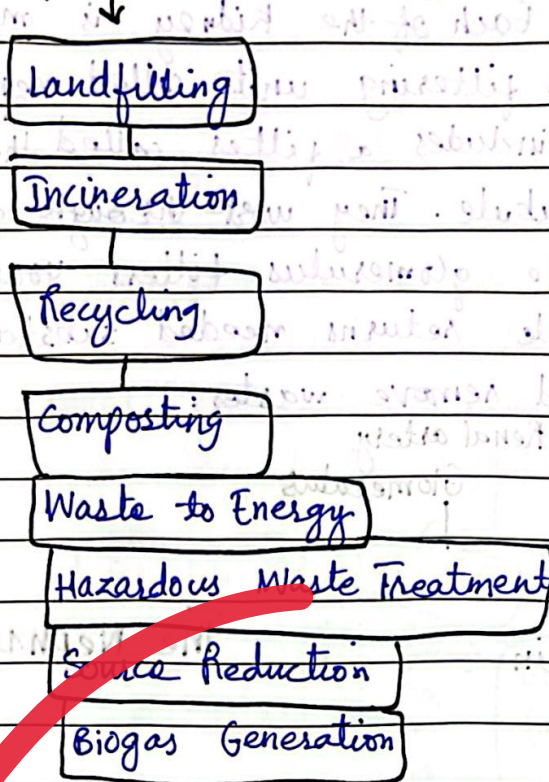 Landfilling
Incineration
Recycling
Composting
Waste to Energy
Hazardous Waste Treatment
Source Reduction
Biogas Generation